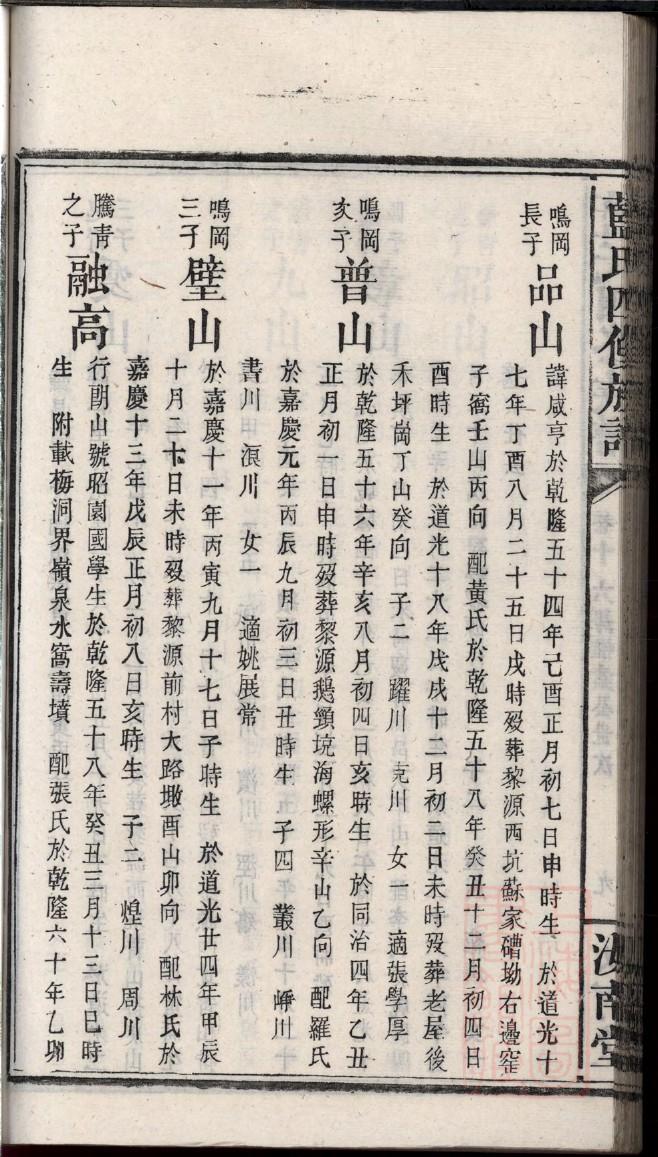 藍氏四修族譜
汝南堂
鳴岡長子 品山 諱咸亨於乾隆五十四年己酉正月初七日申時生 於道光十
七年丁酉八月二十五日戌時歿葬黎源西坑蘇家磄坳右邊窑
子窩壬山丙向 配黃氏於乾隆五十八年癸丑十月初四日
酉時生 於道光十八年戊戌十二月初二日未時歿葬老屋後
禾坪崗丁山癸向 子二 躍川 克川 女一 適張學厚
鳴岡次子 普山 於乾隆五十六年辛亥八月初四日亥時生 於同治四年乙丑
正月初一日申時歿葬黎源鵝頸境海螺形辛山乙向 配羅氏
於嘉慶元年丙辰九月初三日丑時生 子四 叢川 崢川
書川 濵川 女一 適姚展常
鳴岡三子 璧山 於嘉慶十一年丙寅九月十七日子時生 於道光廿四年甲辰
十月二十日未時歿葬黎源前村大路墩酉山卯向 配林氏於
嘉慶十三年戊辰正月初八日亥時生 子二 煌川 周川
騰青之子 融高 行朗山號昭園國學生於乾隆五十八年癸丑三月十三日巳時
生 附載梅洞界嶺泉水窩壽墳 配張氏於乾隆六十年乙卯